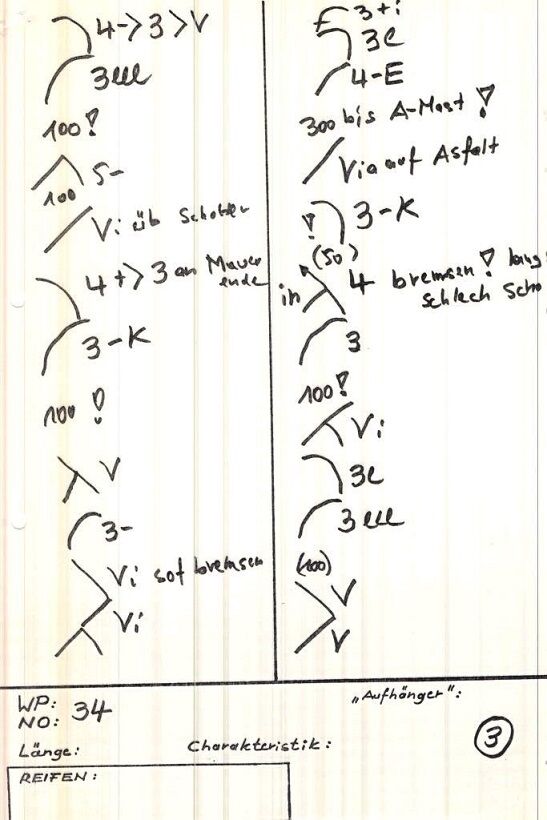 4->3>V
3lll
100!
100 5-
Vi üb Schotter
4+>3 an Mauer
ende
3-K
100!
V
3-
Vi sof bremsen
Vi
3+i
3l
4-E
300 bis A-Mast!
Vi auf Asfalt
! 3-K
(50)
in 4 bremsen! lang
schlech Scho
3
100!
Vi
3l
3lll
(100)
V
V
WP: 34
NO:
„Aufhänger":
Länge: Charakteristik: 3
REIFEN: